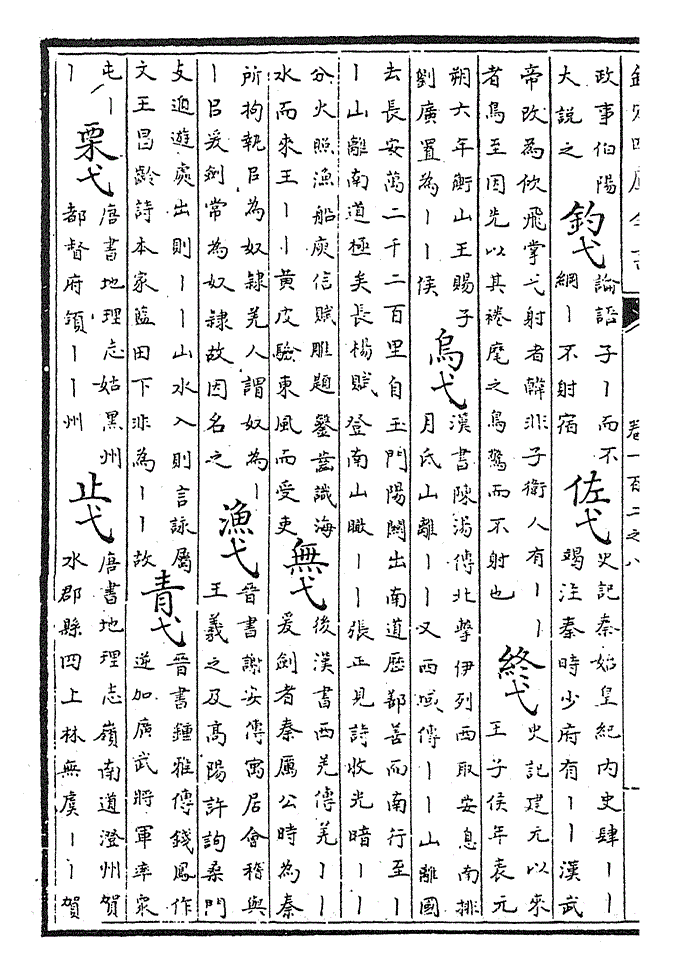 欽定四庫全書
卷一百二之八
政事伯陽
大說之
釣弋
論語子丨而不
綱丨不射宿
佐弋
史記秦始皇紀內史肆丨丨
竭注秦時少府有丨丨漢武
帝改為佽飛掌弋射者韓非子衛人有丨丨
者鳥至因先以其裷麾之鳥驚而不射也
終弋
史記建元以來
王子侯年表元
朔六年衡山王賜子
劉廣置為丨丨侯
烏弋
漢書陳湯傳北擊伊列西取安息南排
月氏山離丨丨又西域傳丨丨山離國
去長安萬二千二百里自玉門陽關出南道歷鄯善而南行至丨
丨山離南道極矣長楊賦登南山瞰丨丨張正見詩收光暗丨丨
分火照漁船庾信賦雕題鑿齒識海
水而來王丨丨黃皮驗東風而受吏
無弋
後漢書西羌傳羌丨丨
爰劍者秦厲公時為秦
所拘執㠯為奴隸羌人謂奴為丨
丨㠯爰劍常為奴隸故因名之
漁弋
晉書謝安傳寓居會稽與
王羲之及高陽許詢桑門
支遁遊處出則丨丨山水入則言詠屬
文王昌齡詩本家藍田下非為丨丨故
青弋
晉書鍾雅傳錢鳳作
逆加廣武將軍率眾
屯丨
丨
栗弋
唐書地理志姑黑州
都督府領丨丨州
止弋
唐書地理志嶺南道澄州賀
水郡縣四上林無虞丨丨賀